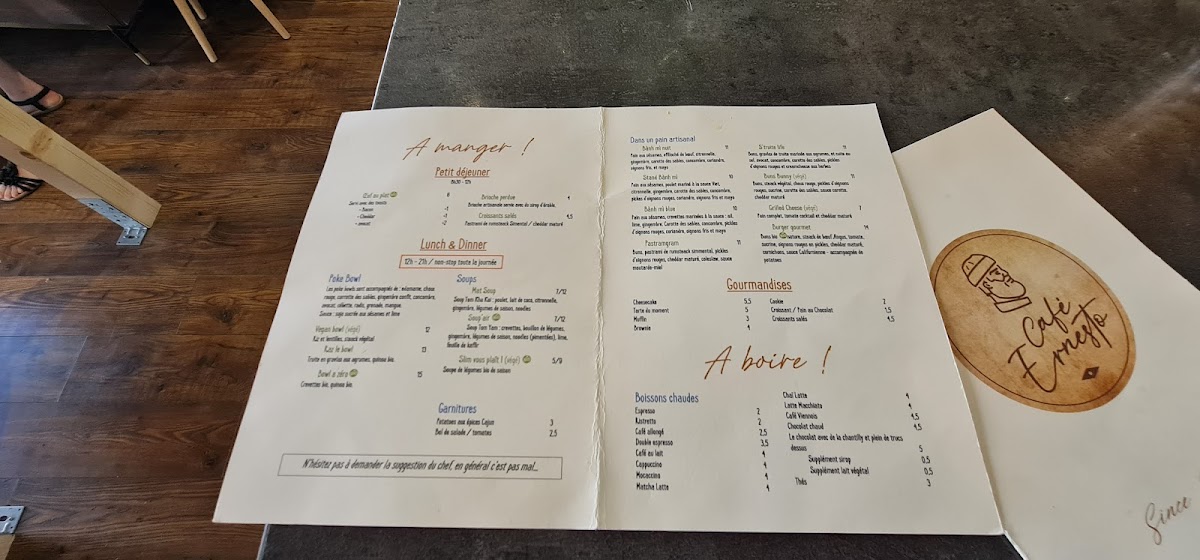 A manger !
Petit déjeuner
8h30 - 12h
Œuf au plat 8
Servi avec des toasts
- Bacon -1
- Cheddar -1
- avocat -2
Brioche perdue 4
Brioche artisanale servie avec du sirop d'érable.
Croissants salés 4,5
Pastrami de rumsteack Simental / cheddar maturé
Lunch & Dinner
12h - 21h / non-stop toute la journée
Poke Bowl
Les poke bowls sont accompagnés de : edamame, choux
rouge, carottes des sables, gingembre confit, concombre,
avocat, oeillette, radis, grenade, mangue
Sauce : soja sucrée aux sésames et lime
Vegan bowl (végé) 12
Riz et lentilles, steack végétal
Kaz le bowl 13
Truite en gravlax aux agrumes, quinoa bio.
Bowl a zéro 15
Crevettes bio, quinoa bio.
Soups
Mat Soup 7/12
Soup Tom Kha Kai : poulet, lait de coco, citronnelle,
gingembre, légumes de saison, noodles
Soup'air 7/12
Soup Tom Yam : crevettes, bouillon de légumes,
gingembre, légumes de saison, noodles (pimentées), lime,
feuille de kaffir
Slim vous plaît ! (végé) 5/9
Soupe de légumes bio de saison
Garnitures
Potatoes aux épices Cajun 3
Bol de salade / tomates 2,5
N'hésitez pas à demander la suggestion du chef, en général c'est pas mal...
Dans un pain artisanal
Bánh mì nuit 11
Pain aux sésames, effiloché de bœuf, citronnelle,
gingembre, carotte des sables, concombre, coriandre,
oignons frits, et mayo
Stand Bánh mì 10
Pain aux sésames, poulet mariné à la sauce Kai,
citronnelle, gingembre, carotte des sables, concombre,
pickles d'oignons rouges, coriandre, oignons frits et mayo
Bánh mì blue 10
Pain aux sésames, crevettes marinées à la sauce : ail,
lime, gingembre. Carottes des sables, concombre, pickles
d'oignons rouges, coriandre, oignons frits et mayo
Pastramgram 11
Buns, pastrami de rumsteack simmental, pickles
d'oignons rouges, cheddar maturé, coleslaw, sauce
moutarde-miel
S'truite Vilo 11
Buns, gravlax de truite marinée aux agrumes, et cuite au
sel, avocat, concombre, carotte des sables, pickles
d'oignons rouges et creamcheese aux herbes.
Buns Bunny (végé) 11
Buns, steack végétal, choux rouge, pickles d'oignons
rouges, sucrine, carotte des sables, sauce cocktail,
cheddar maturé
Grilled Cheese (végé) 7
Pain complet, tomate cocktail et cheddar maturé
Burger gourmet 14
Buns bio nature, steack de bœuf Angus, tomate,
sucrine, oignons rouges en pickles, cheddar maturé,
cornichons, sauce Californienne - accompagnée de
potatoes
Gourmandises
Cheesecake 5,5
Tarte du moment 5
Muffin 3
Brownie 4
Cookie 2
Croissant / Pain au Chocolat 1,5
Croissants salés 4,5
A boire !
Boissons chaudes
Espresso 2
Ristretto 2
Café allongé 2,5
Double espresso 3,5
Café au lait 4
Cappuccino 4
Mocaccino 4
Matcha Latte 4
Chaï Latte 4
Latte Macchiato 4
Café Viennois 4,5
Chocolat chaud 4,5
Le chocolat avec de la chantilly et plein de trucs
dessus 5
Supplément sirop 0,5
Supplément lait végétal 0,5
Thés 3
Café
Ernesto
Since